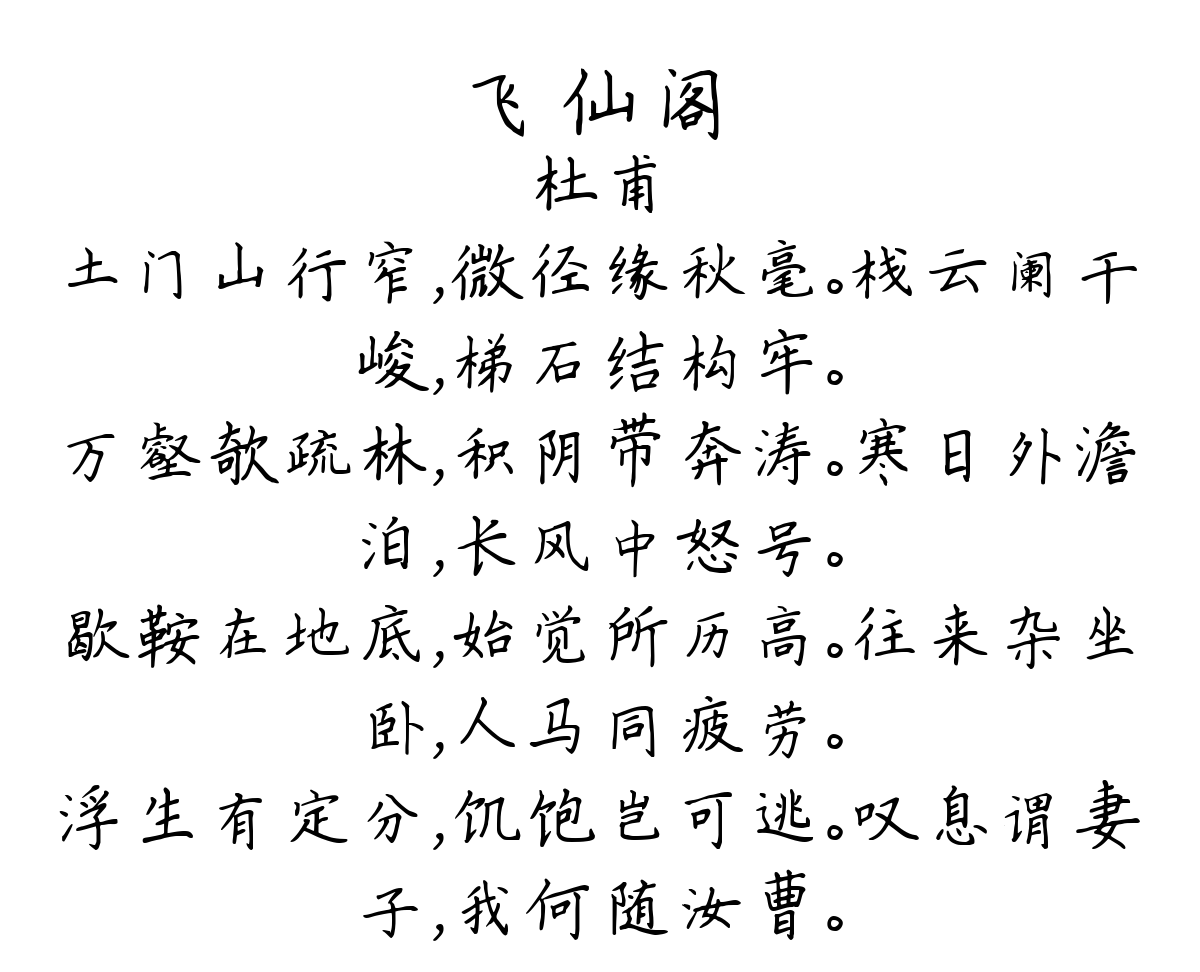 飞仙阁
杜甫
土门山行窄,微径缘秋毫。栈云阑干
峻,梯石结构牢。
万壑欹疏林,积阴带奔涛。寒日外澹
泊,长风中怒号。
歇鞍在地底,始觉所历高。往来杂坐
卧,人马同疲劳。
浮生有定分,饥饱岂可逃。叹息谓妻
子,我何随汝曹。